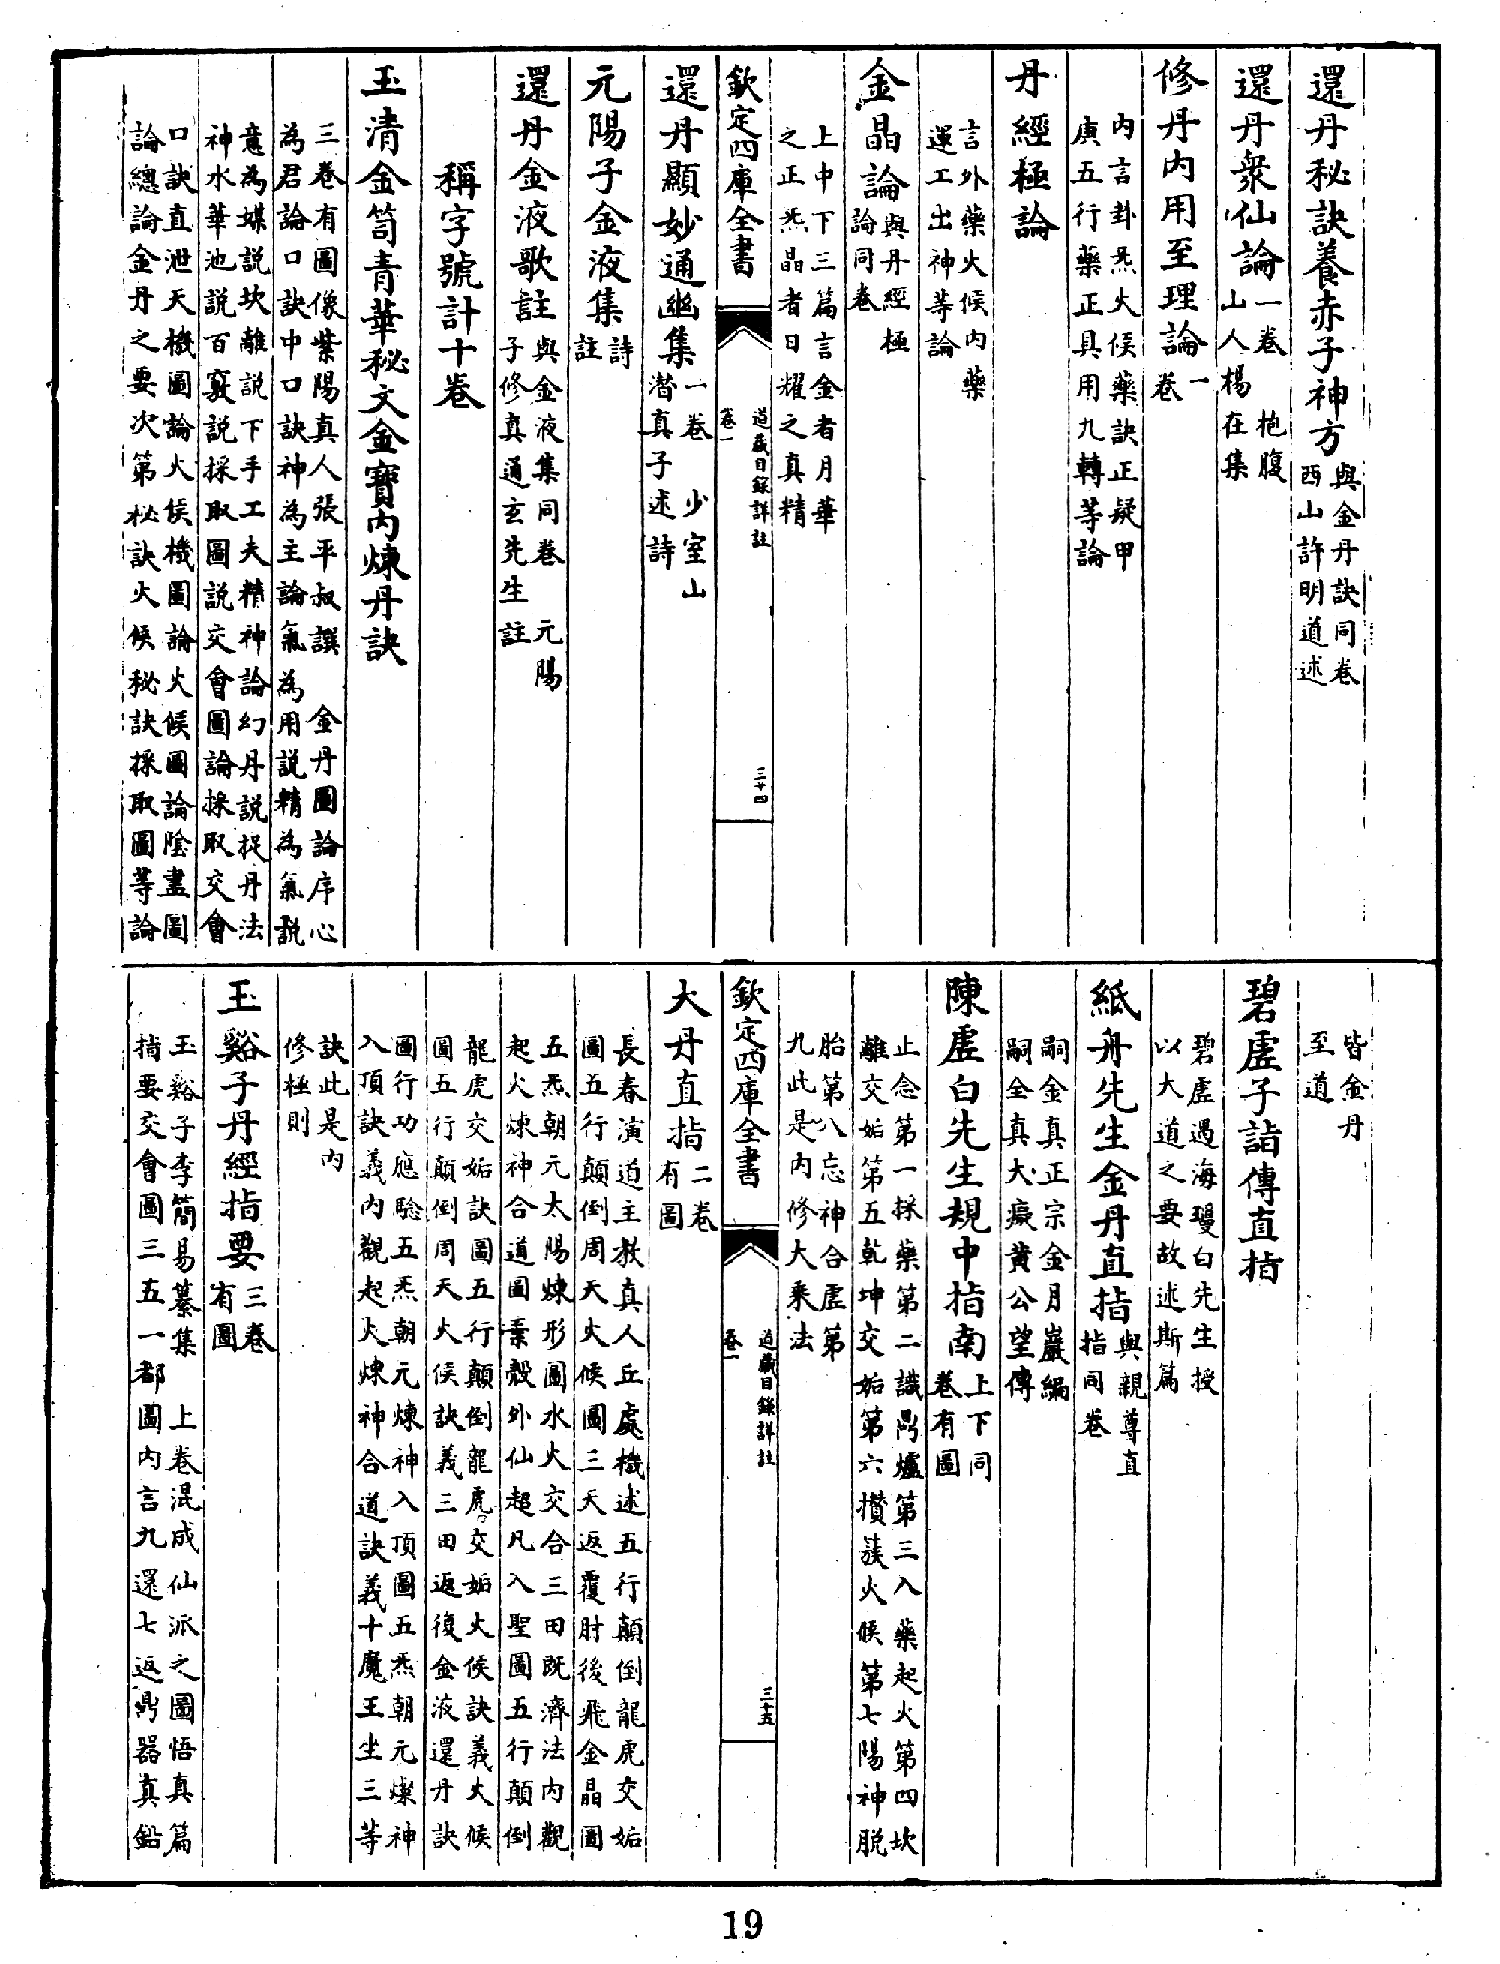 還丹秘訣養赤子神方與金丹訣同卷
西山許明道述
還丹衆仙論一卷 抱腹
山人楊在集
修丹内用至理論一
卷
内言卦炁火候藥訣正疑甲
庚五行藥正具用九轉等論
丹經極論
言外藥火候内藥
運工出神等論
金晶論與丹經極
論同卷
上中下三篇言金者月華
之正炁晶者日耀之真精
欽定四庫全書
道藏目錄詳註
卷一
三十四
還丹顯妙通幽集一卷 少室山
潜真子述詩
元陽子金液集詩
註
還丹金液歌註與金液集同卷 元陽
子修真通玄先生註
稱字號計十卷
玉清金笥青華秘文金寶内煉丹訣
三卷有圖像紫陽真人張平叔譔 金丹圖論序心
為君論口訣中口訣神為主論氣為用説精為氣説
意為媒説坎離説下手工夫精神論幻丹説捉丹法
神水華池説百竅説採取圖説交會圖論採取交會
口訣直泄天機圖論火候機圖論火候圖論陰盡圖
論總論金丹之要次第秘訣火候秘訣採取圖等論
皆金丹
至道
碧虛子詣傳直指
碧虛遇海瓊白先生授
以大道之要故述斯篇
紙舟先生金丹直指與親尊直
指同卷
嗣金真正宗金月巖編
嗣全真大癡黄公望傳
陳虛白先生規中指南上下同
卷有圖
止念第一採藥第二識鼎爐第三入藥起火第四坎
離交姤第五乾坤交姤第六攅蔟火候第七陽神脱
胎第八忘神合虛第
九此是内修大乘法
欽定四庫全書
道藏目錄詳註
卷一
三十五
大丹直指二卷
有圖
長春演道主教真人丘處機述五行顛倒龍虎交姤
圖五行顛倒周天火候圖三天返覆肘後飛金晶圖
五炁朝元太陽煉形圖水火交合三田既濟法内觀
起火煉神合道圖棄殼外仙超凡入聖圖五行顛倒
龍虎交姤訣圖五行顛倒龍虎交姤火候訣義火候
圖五行顛倒周天火侯訣義三田返復金液還丹訣
圖行功應驗五炁朝元煉神入頂圖五炁朝元煉神
入頂訣義内觀起火煉神合道訣義十魔王坐三等
訣此是内
修極則
玉谿子丹經指要三卷
有圖
玉谿子李簡易纂集 上卷混成仙派之圖悟真篇
指要交會圖三五一都圖内言九還七返鼎器真鉛
19